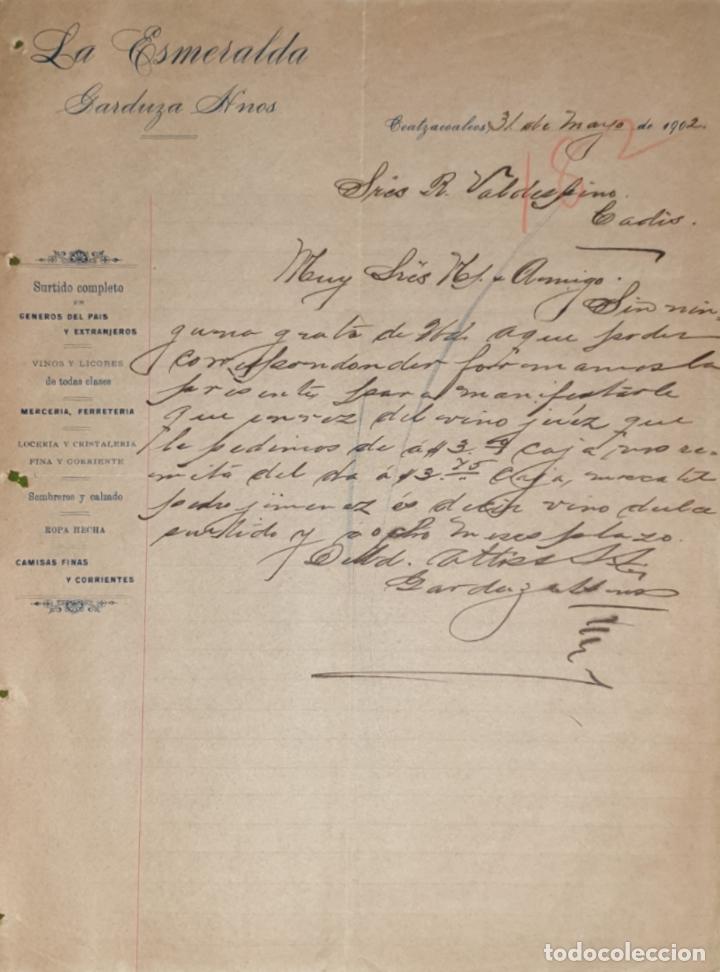 La Esmeralda
Garduza Hnos
Coatzacoalcos, 31 de Mayo de 1902.
1802
Sres R. Valdespino.
Cadis.
Surtido completo
EN
GENEROS DEL PAIS
Y EXTRANJEROS
VINOS Y LICORES
de todas clases
MERCERIA, FERRETERIA
LOCERIA Y CRISTALERIA
FINA Y CORRIENTE
Sombreros y calzado
ROPA HECHA
CAMISAS FINAS
Y CORRIENTES
Muy Sres Ms. y Amigo.
Sin nin-
guna grata de Vd. a que poder
correspondonder formamos la
presente para manifestarle
que en vez del vino juez que
le pedimos de á $3. Caja, nos re-
mitá del da á $3.75 Caja, moscatel
pedro jimenez és decir vino dulce
surtido y á ocho meses plazo.
De Vd. Attos S. S.
Garduza Hnos
todocoleccion
todocoleccion.net